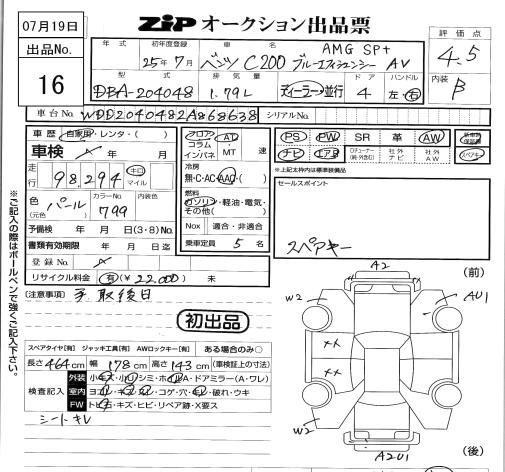 07月19日
出品No.
16
ZIP オークション出品票
評価点
4.5
内装
β
年式 初年度登録 車名
25年7月 ベンツ C200 ブルーエフィシェンシー AV
AMG SP+
型式 排気量 ドア ハンドル
DBA-204048 1.79L ディーラー・並行 4 左・右
車台No. WDD2040482A868638 シリアルNo.
車歴 自家用・レンタ・( )
車検 年 月 日
走行 98,294 キロ マイル
色(元色) パール カラーNo. 799 内装色
予備検 年 月 日(3・8)No.
書類有効期限 年 月 日迄
登録No.
リサイクル料金 有(¥ 22,000) 未
フロア コラム インパネ AT・MT 速
冷房
無・C・AC・AAC・( )
燃料
ガソリン・軽油・電気・その他( )
Nox 適合・非適合
乗車定員 5 名
PS PW SR 革 AW
ナビ エアB 社外ナビ 社外AW スペアキー
※上記太枠内は標準装備品
セールスポイント
スペアキー
※ご記入の際はボールペンで強くご記入下さい。
[注意事項] 予 取後日
初出品
スペアタイヤ[有] ジャッキ工具[有] AWロックキー[有] ある場合のみ○
長さ 464 cm 幅 178 cm 高さ 143 cm (車検証上の寸法)
検査記入
外装 小キズ・小凹・シミ・ホイルA・ドアミラー(A・ワレ)
室内 ヨゴレ・キズ・スレ・コゲ・穴・キレ・破れ・ウキ
FW トビ石・キズ・ヒビ・リペア跡・X要ス
シートキレ
A2 (前)
W2 AU1
W2
A2U1 (後)